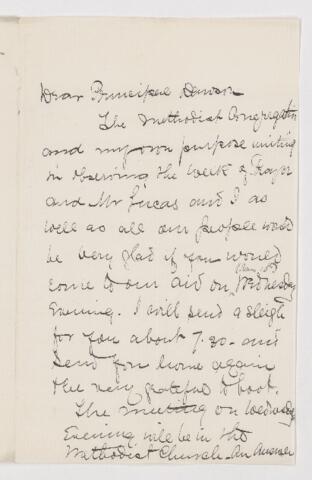 Dear Principal Dawson
The Methodist Congregation
and my own purpose uniting
in observing the week of Prayer
and Mr Lucas and I as
well as all our people would
be very glad if you would
come to our aid on Wednesday
Evening. I will send a sleigh
for you about 7.30 - and
send you home again
the very grateful to boot.
The meeting on Wednesday
Evening will be in the
Methodist Church - An Answer